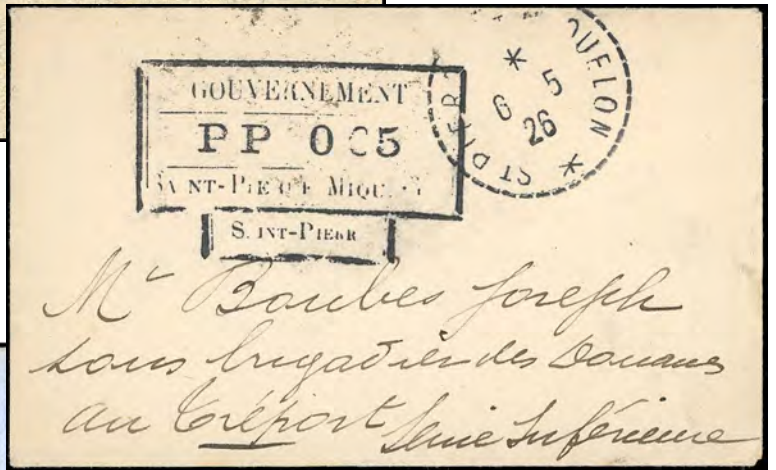 GOUVERNEMENT
PP 0 5
NT-PIE MIQU
S INT-PIERR
ST PIER QUELON
6 5
26
Mr Boubes Joseph
sous brigadier des Douanes
au Tréport Seine Inférieure